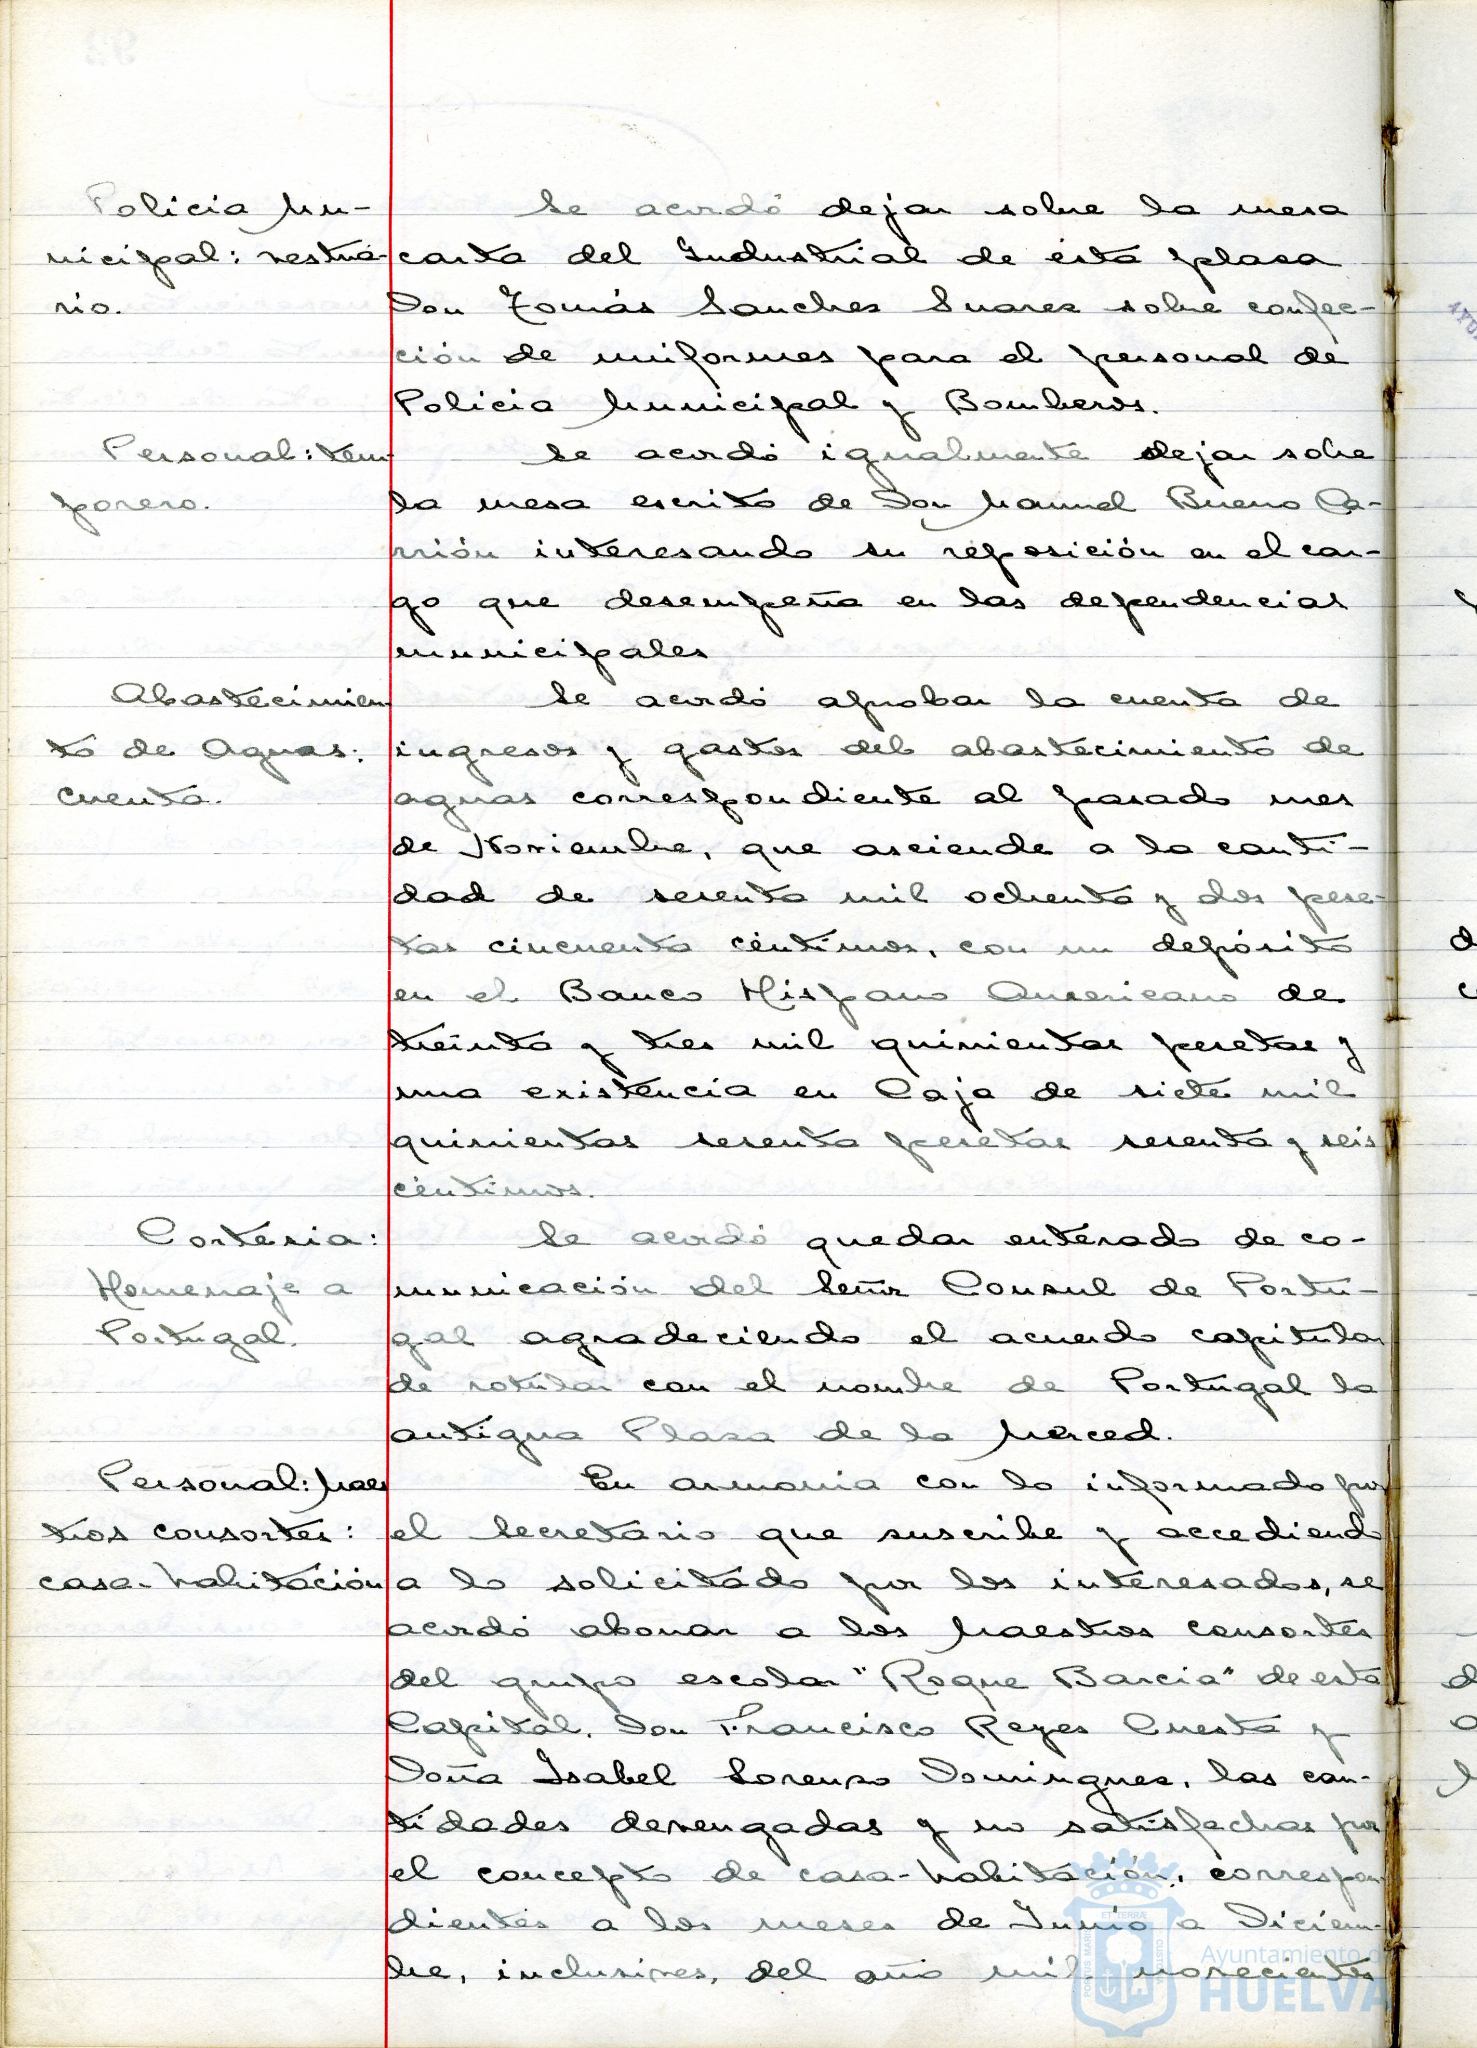 Policia Mu-
nicipal: vestua-
rio.
Se acordó dejar sobre la mesa
carta del Industrial de ésta plaza
Don Tomás Sanchez Suarez sobre confec-
ción de uniformes para el personal de
Policia Municipal y Bomberos.
Personal: tem-
porero.
Se acordó igualmente dejar sobre
la mesa escrito de Don Manuel Bueno Ca-
rrión interesando su reposición en el car-
go que desempeña en las dependencias
municipales
Abastecimien-
to de Aguas:
cuenta.
Se acordó aprobar la cuenta de
ingresos y gastos del abastecimiento de
aguas correspondiente al pasado mes
de Noviembre, que asciende a la canti-
dad de sesenta mil ochenta y dos pese-
tas cincuenta céntimos, con un depósito
en el Banco Hispano Americano de
treinta y tres mil quinientas pesetas y
una existencia en Caja de siete mil
quinientas sesenta pesetas sesenta y seis
céntimos.
Cortesia:
Homenaje a
Portugal.
Se acordó quedar enterado de co-
municación del Señor Consul de Portu-
gal agradeciendo el acuerdo capitular
de rotular con el nombre de Portugal la
antigua Plaza de la Merced.
Personal: Maes
tros consortes:
casa-habitación
En armonia con lo informado por
el Secretario que suscribe y accediendo
a lo solicitado por los interesados, se
acordó abonar a los Maestros consortes
del grupo escolar "Roque Barcia" de esta
Capital, Don Francisco Reyes Cuesta y
Doña Isabel Lorenzo Dominguez, las can-
tidades devengadas y no satisfechas por
el concepto de casa-habitación, correspon
dientes a los meses de Junio a Diciem-
bre, inclusives, del año mil novecientos
Ayuntamiento de
HUELVA